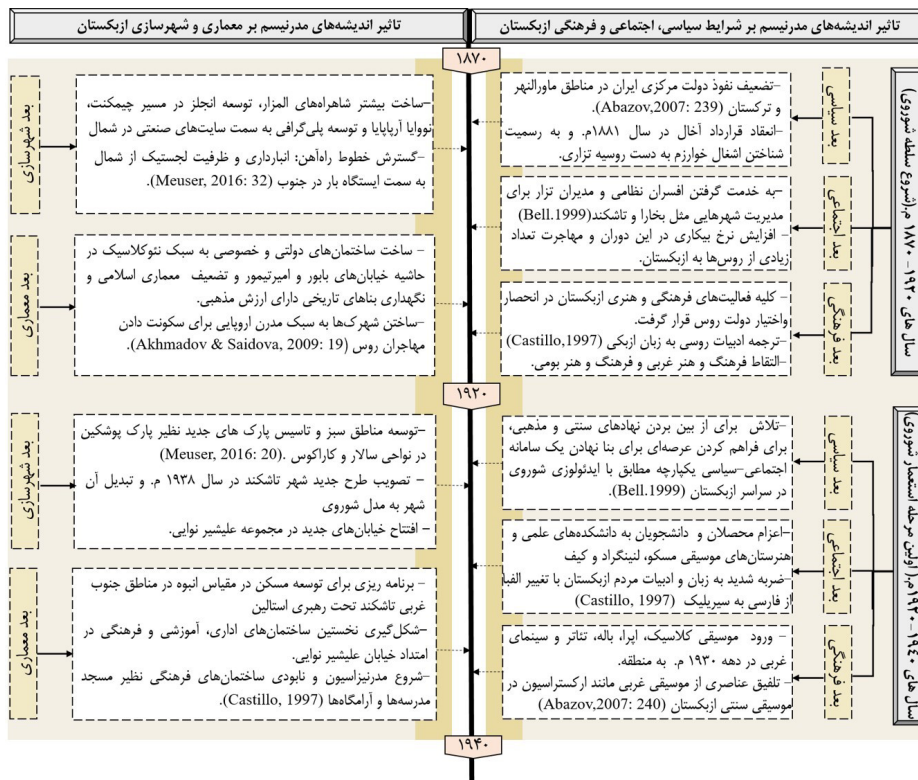 تاثیر اندیشه‌های مدرنیسم بر شرایط سیاسی، اجتماعی و فرهنگی ازبکستان
تاثیر اندیشه‌های مدرنیسم بر معماری و شهرسازی ازبکستان
۱۸۷۰
سال های ۱۹۲۰ – ۱۸۷۰ م.(شروع سلطه شوروی)
بعد سیاسی
–تضعیف نفوذ دولت مرکزی ایران در مناطق ماورالنهر
و ترکستان (Abazov,2007: 239).
–انعقاد قرارداد آخال در سال ۱۸۸۱م. و به رسمیت
شناختن اشغال خوارزم به دست روسیه تزاری.
بعد اجتماعی
–به خدمت گرفتن افسران نظامی و مدیران تزار برای
مدیریت شهرهایی مثل بخارا و تاشکند(Bell.1999)
– افزایش نرخ بیکاری در این دوران و مهاجرت تعداد
زیادی از روس‌ها به ازبکستان.
بعد فرهنگی
– کلیه فعالیت‌های فرهنگی و هنری ازبکستان در انحصار
واختیار دولت روس قرار گرفت.
–ترجمه ادبیات روسی به زبان ازبکی (Castillo,1997)
–التقاط فرهنگ و هنر غربی و فرهنگ و هنر بومی.
بعد شهرسازی
–ساخت بیشتر شاهراه‌های المزار، توسعه انجلز در مسیر چیمکنت،
نووایا آرپاپایا و توسعه پلی‌گرافی به سمت سایت‌های صنعتی در شمال
–گسترش خطوط راه‌آهن: انبارداری و ظرفیت لجستیک از شمال
به سمت ایستگاه بار در جنوب (Meuser, 2016: 32).
بعد معماری
– ساخت ساختمان‌های دولتی و خصوصی به سبک نئوکلاسیک در
حاشیه خیابان‌های بابور و امیرتیمور و تضعیف معماری اسلامی و
نگهداری بناهای تاریخی دارای ارزش مذهبی.
–ساختن شهرک‌ها به سبک مدرن اروپایی برای سکونت دادن
مهاجران روس (Akhmadov & Saidova, 2009: 19).
۱۹۲۰
سال های ۱۹۴۰–۱۹۲۰م.( اولین مرحله استعمار شوروی)
بعد سیاسی
–تلاش برای از بین بردن نهادهای سنتی و مذهبی،
برای فراهم کردن عرصه‌ای برای بنا نهادن یک سامانه
اجتماعی–سیاسی یکپارچه مطابق با ایدئولوژی شوروی
در سراسر ازبکستان (Bell.1999).
بعد اجتماعی
–اعزام محصلان و دانشجویان به دانشکده‌های علمی و
هنرستان‌های موسیقی مسکو، لنینگراد و کیف
–ضربه شدید به زبان و ادبیات مردم ازبکستان با تغییر الفبا
از فارسی به سیریلیک (Castillo, 1997)
بعد فرهنگی
– ورود موسیقی کلاسیک، اپرا، باله، تئاتر و سینمای
غربی در دهه ۱۹۳۰ م. به منطقه.
– تلفیق عناصری از موسیقی غربی مانند ارکستراسیون در
موسیقی سنتی ازبکستان (Abazov,2007: 240)
بعد شهرسازی
–توسعه مناطق سبز و تاسیس پارک های جدید نظیر پارک پوشکین
در نواحی سالار و کاراکوس .(Meuser, 2016: 20)
– تصویب طرح جدید شهر تاشکند در سال ۱۹۳۸ م. و تبدیل آن
شهر به مدل شوروی
– افتتاح خیابان‌های جدید در مجموعه علیشیر نوایی.
بعد معماری
– برنامه ریزی برای توسعه مسکن در مقیاس انبوه در مناطق جنوب
غربی تاشکند تحت رهبری استالین
–شکل‌گیری نخستین ساختمان‌های اداری، آموزشی و فرهنگی در
امتداد خیابان علیشیر نوایی.
– شروع مدرنیزاسیون و نابودی ساختمان‌های فرهنگی نظیر مسجد
مدرسه‌ها و آرامگاه‌ها (Castillo, 1997).
۱۹۴۰